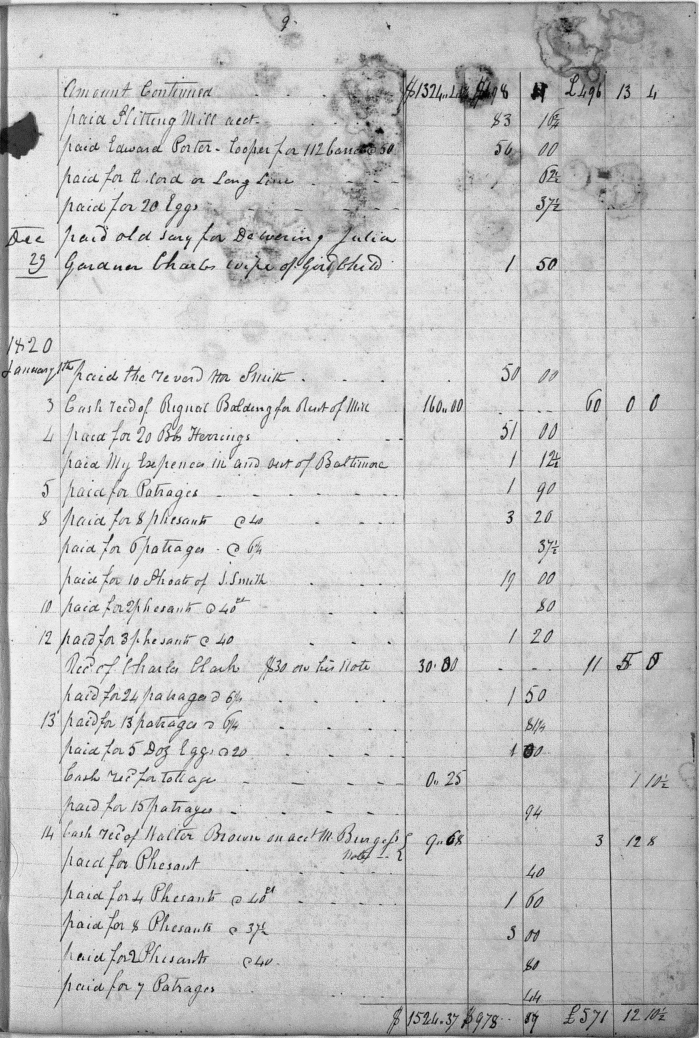 9
Amount Continued $1324.. $ 98 £496 13 4
paid Slitting Mill acct. 83 16¼
paid Edward Porter - Cooper for 112 @ 50 56 00
paid for cord or Long Line 62½
paid for 20 Eggs 37½
Dec paid old Sary for Delivering Julia
29 Gardner Charles wife of Child 1 50
1820
January 1th paid the reverd Mr Smith 50 00
3 Cash recd of Rignal Balding for Rent of Mill 160..00 60 0 0
4 paid for 20 Bbs Herrings 51 00
paid My Expences in and out of Baltimore 1 12½
5 paid for Patrages 1 90
8 paid for 8 phesants @ 40 3 20
paid for 6 patrages @ 6¼ 37½
paid for 10 Shoats of J. Smith 19 00
10 paid for 2 phesants @ 40 ct 80
12 paid for 3 phesants @ 40 1 20
Recd of Charles Clark $30 on his Note 30.00 11 5 0
paid for 24 patrages @ 6¼ 1 50
13 paid for 13 patrages @ 6¼ 81¼
paid for 5 Doz Eggs @ 20 1 00
Cash recd for tollage 0..25 1 10½
paid for 15 patrages 94
14 Cash recd of Walter Brown on acct M. Burgess 9..68 3 12 8
Note
paid for Phesant 40
paid for 4 Phesants @ 40 ct 1 60
paid for 8 Phesants @ 37½ 3 00
paid for 2 Phesants @ 40 80
paid for 7 Patrages 44
$1524.37 $978.. 87 £571 12 10½